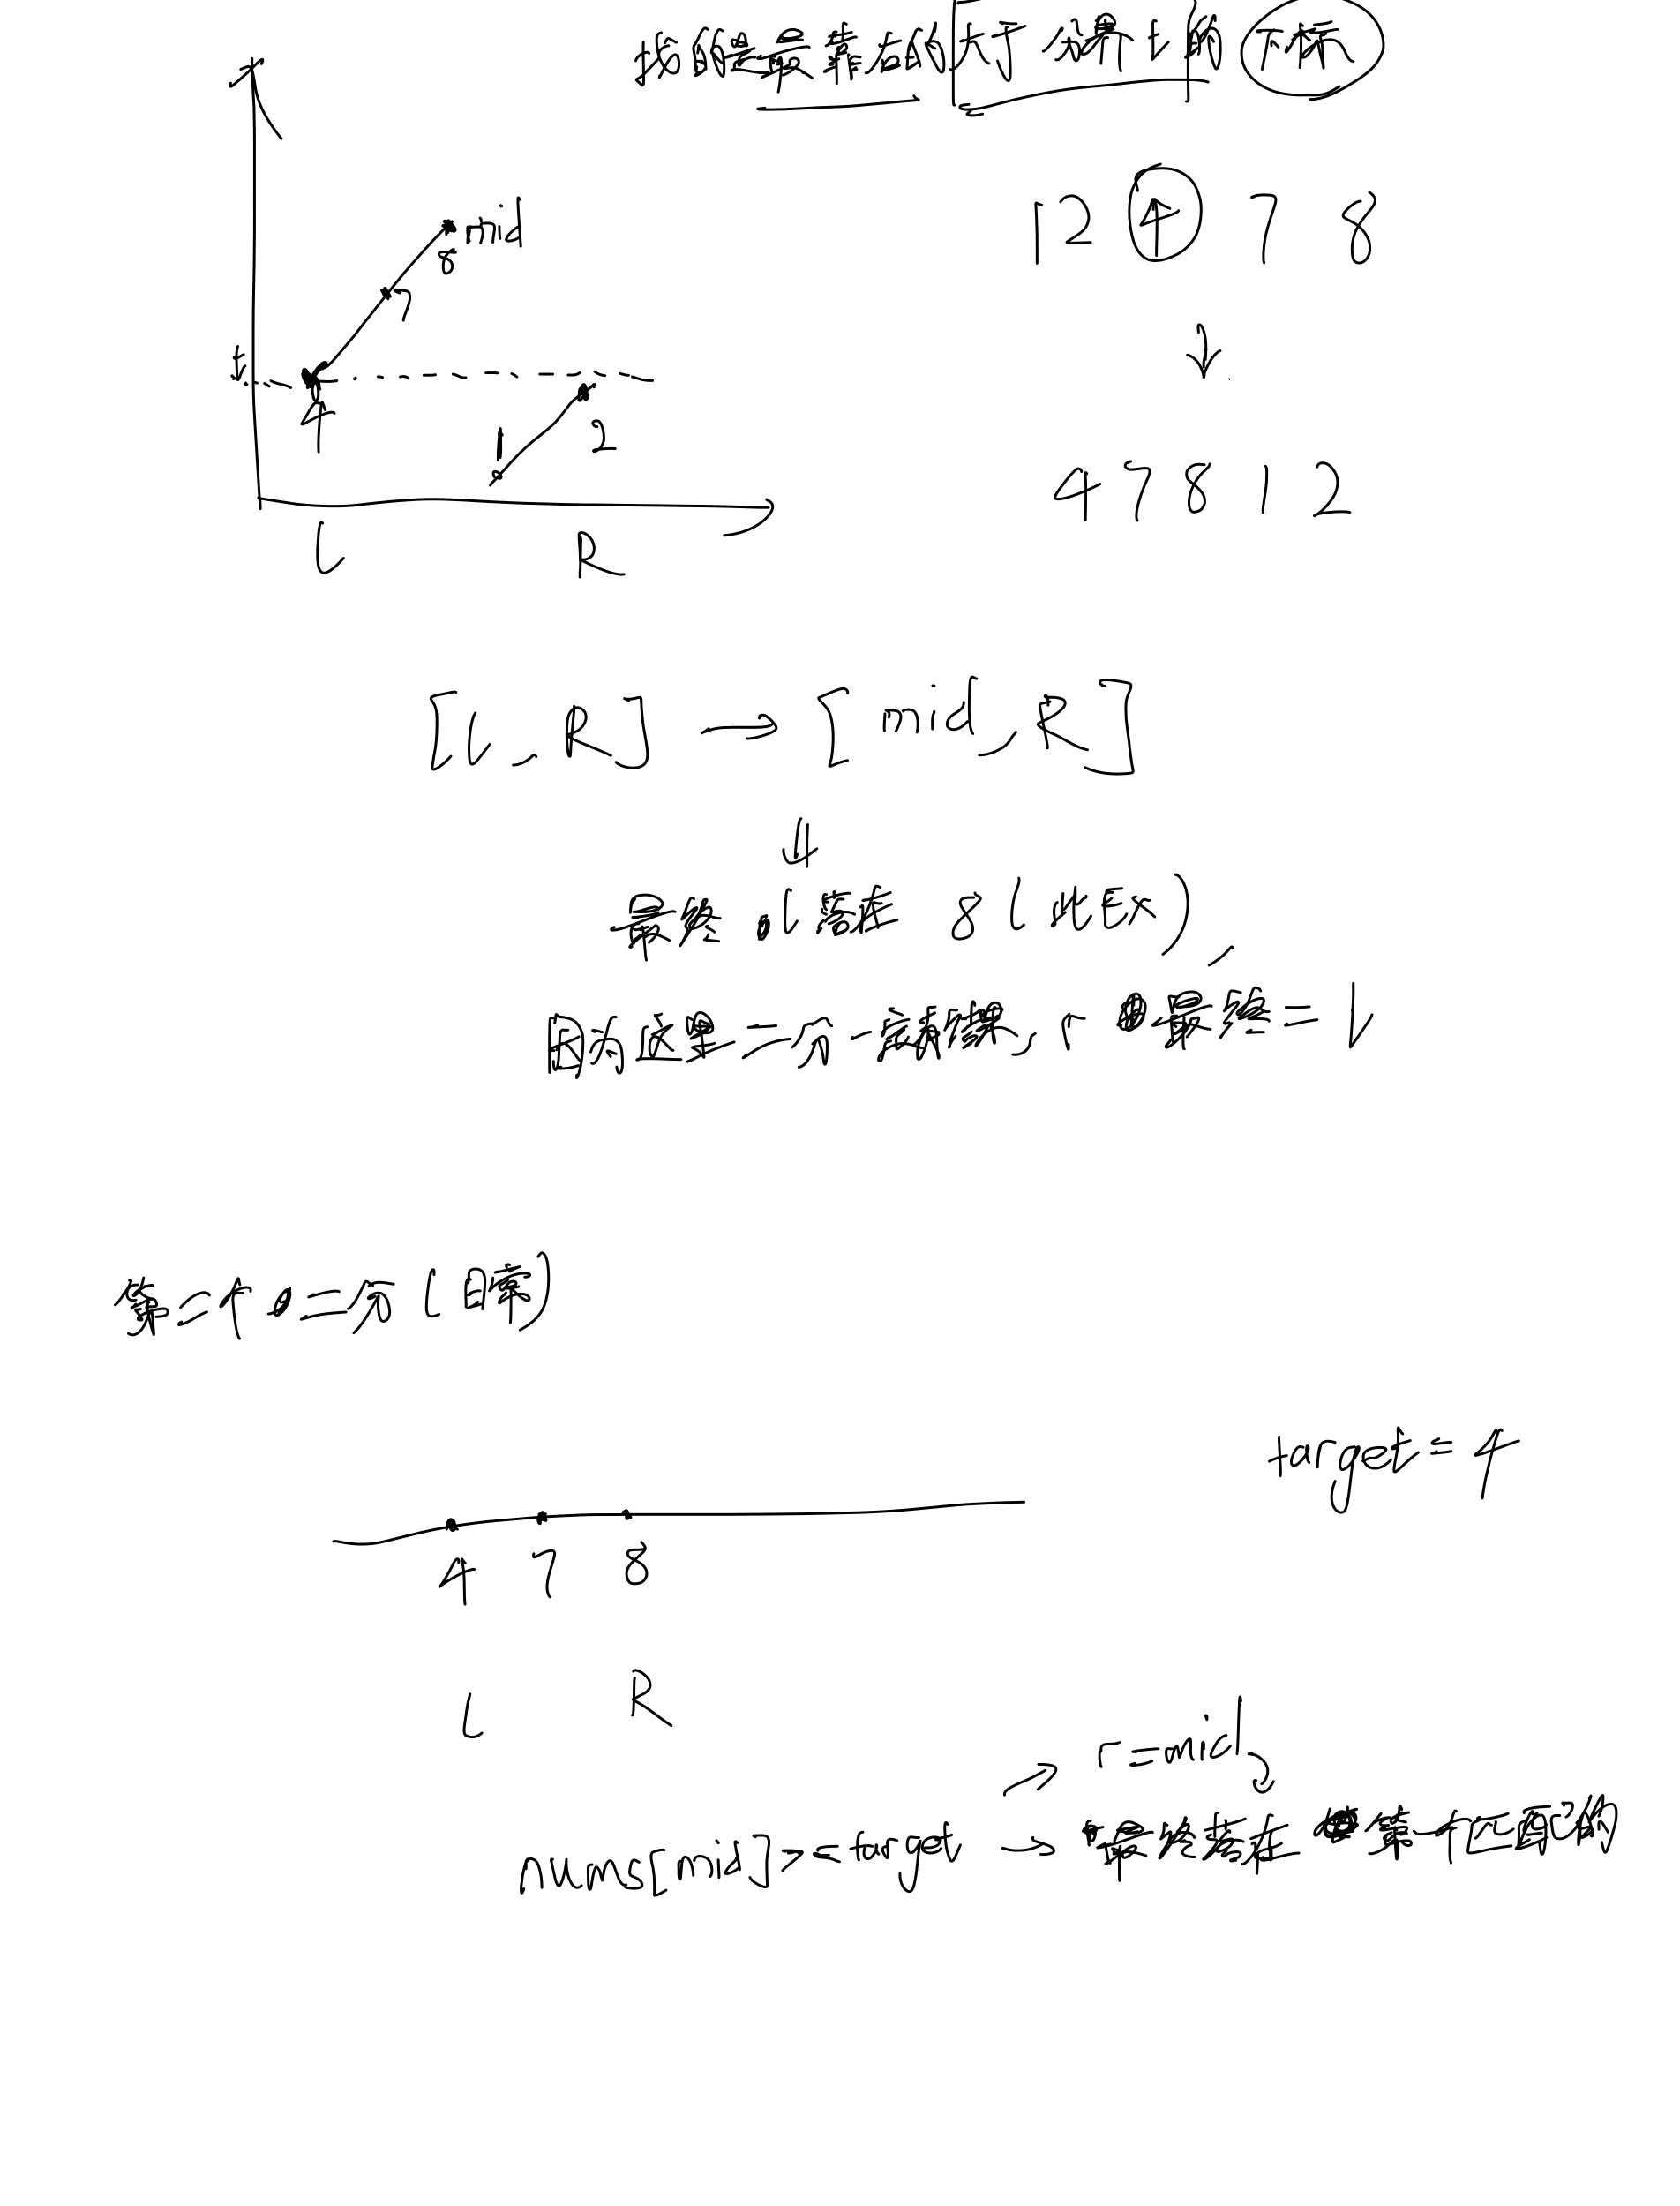 找的是最靠右的大于分界t的下标
1 2 4 7 8
mid
8
7
t
4
1
2
4 7 8 1 2
L R
[L, R] → [mid, R]
最终 l落在 8 (此EX),
因为这里二分一定有结果, r 最终 = l
第二个 二分 (日常)
target = 4
4 7 8
L R
r=mid,
nums[mid]>=target → 最终落在 第一个匹配的